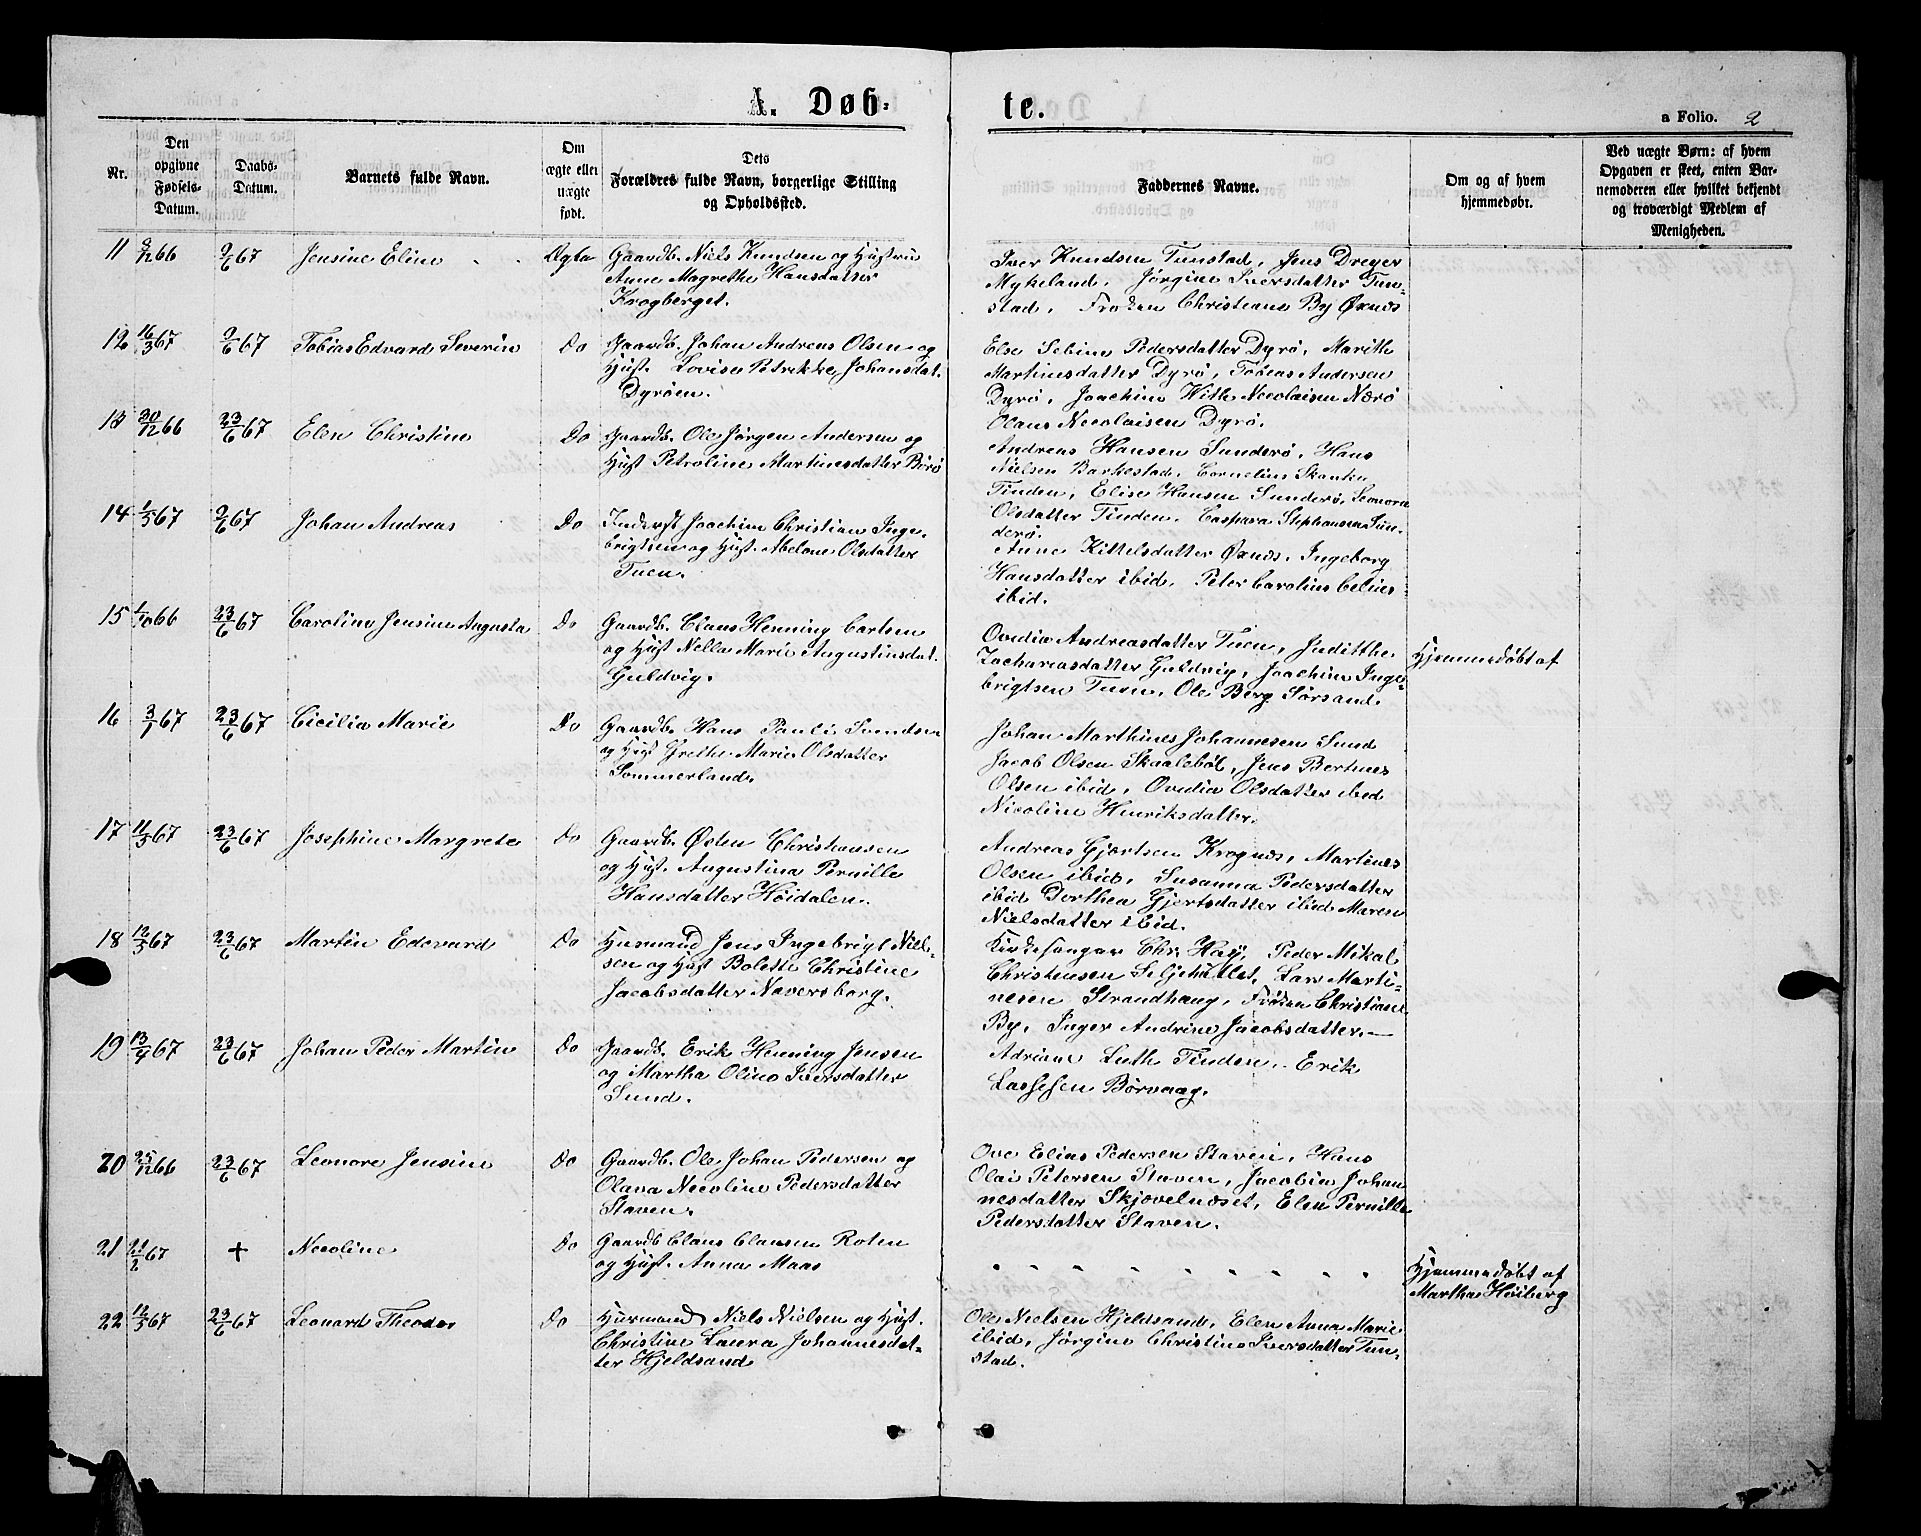 A. Døb-
te.
a Folio. 2
Nr.
Den opgivne Fødsels-Datum.
Daabs-Datum.
Barnets fulde Navn.
Om ægte eller uægte født.
Dets Forældres fulde Navn, borgerlige Stilling og Opholdssted.
Faddernes Navne.
Om og af hvem hjemmedøbt.
Ved uægte Børn: af hvem Opgaven er skeet, enten Barnemoderen eller hvilket bekjendt og troværdigt Medlem af Menigheden.
11 9/12 66 9/6 67 Jensine Eline Ægte Gaardb. Niels Knudsen og Hustru
Anne Magrethe Hansdatter
Krogberget.
Iver Knudsen Tunstad, Jens Dreyer
Mykeland, Jørgine Iversdatter Tun-
stad, Frøken Christiane By Øxnæs
12 16/3 67 9/6 67 Tobias Edvard Severin Do Gaardb. Johan Andreas Olsen og
Hust. Lovise Petrikke Johansdat.
Dyrøen.
Else Sebine Pedersdatter Dyrø, Marith
Martinesdatter Dyrø, Tobias Andersen
Dyrø, Joachim With Nicolaisen Nærø
Olaus Nicolaisen Dyrø.
13 30/12 66 23/6 67 Elen Christine Do Gaardb. Ole Jørgen Andersen og
Hust Petroline Martinesdatter Birø
Andreas Hansen Sunderø, Hans
Nielsen Barkestad, Cornelius Skanke
Tinden, Elise Hansen Sunderø, Leonora
Olsdatter Tinden, Caspara Stephansen Sun-
derø.
14 1/5 67 9/6 67 Johan Andreas Do Inderst Joachim Christian Inge-
brigtsen og Hust. Abelone Olsdatter
Tuen.
Anne Kittelsdatter Øxnæs, Ingeborg
Hansdatter ibid, Peter Carolius Celius
ibid.
15 1/10 66 23/6 67 Caroline Jensine Augusta Do Gaardb. Claus Henning Carlsen
og Hust Nella Marie Augustinsdat.
Guldvig.
Ovidia Andreasdatter Tuen, Judithe
Zachariasdatter Guldvig, Joachim Inge-
brigtsen Tuen, Ole Berg Sørsand.
Hjemmedøbt af
16 3/1 67 23/6 67 Cicilia Marie Do Gaardb. Hans Pauli Svendsen
og Hust Grethe Marie Olsdatter
Sommerland.
Johan Marthines Johannesen Sund
Jacob Olsen Skaalebøl, Jens Bertines
Olsen ibid, Ovidia Olsdatter ibid
Nicoline Henriksdatter.
17 11/5 67 23/6 67 Josephine Margrete Do Gaardb. Østen Christiansen
og Hust. Augustina Pernille
Hansdatter Høidalen.
Andreas Gjertsen Krognæs, Martines
Olsen ibid, Susanna Pedersdatter
ibid Dorthea Gjertsdatter ibid Maren
Nielsdatter ibid.
18 12/5 67 23/6 67 Martin Edevard Do Husmand Jens Ingebrigt Niel-
sen og Hust Bolette Christine
Jacobsdatter Naversborg.
Kirkesanger Chr. Høy, Peder Mikal
Christensen Seljehullet, Lars Marti-
nesen Strandhaug, Frøken Christiane
By, Inger Andrine Jacobsdatter.—
19 13/4 67 23/6 67 Johan Peder Martin Do Gaardb. Erik Henning Jensen
og Martha Oline Iversdatter
Sund.
Adriane Luth Tinden, Erik
Lassesen Børvaag.
20 25/12 66 23/6 67 Leonore Jensine Do Gaardb. Ole Johan Pedersen og
Olava Nicoline Pedersdatter
Staven.
Ove Elias Pedersen Staven, Hans
Olai Petersen Staven, Jacobia Johan
nesdatter Skjovelnæset, Elen Pernille
Pedersdatter Staven.
21 21/2 67 + Nicoline Do Gaardb Claus Clausen Roten
og Hust. Anna Maas
" " " " " " " " "
Hjemmedøbt af
Martha Høiberg
22 12/5 67 23/6 67 Leonard Theodor Do Husmand Niels Nielsen og Hust.
Christine Laura Johannesdat-
ter Hjeldsand
Ole Nielsen Hjeldsand, Elen Anna Marie
ibid, Jørgine Christine Iversdatter Tun-
stad.